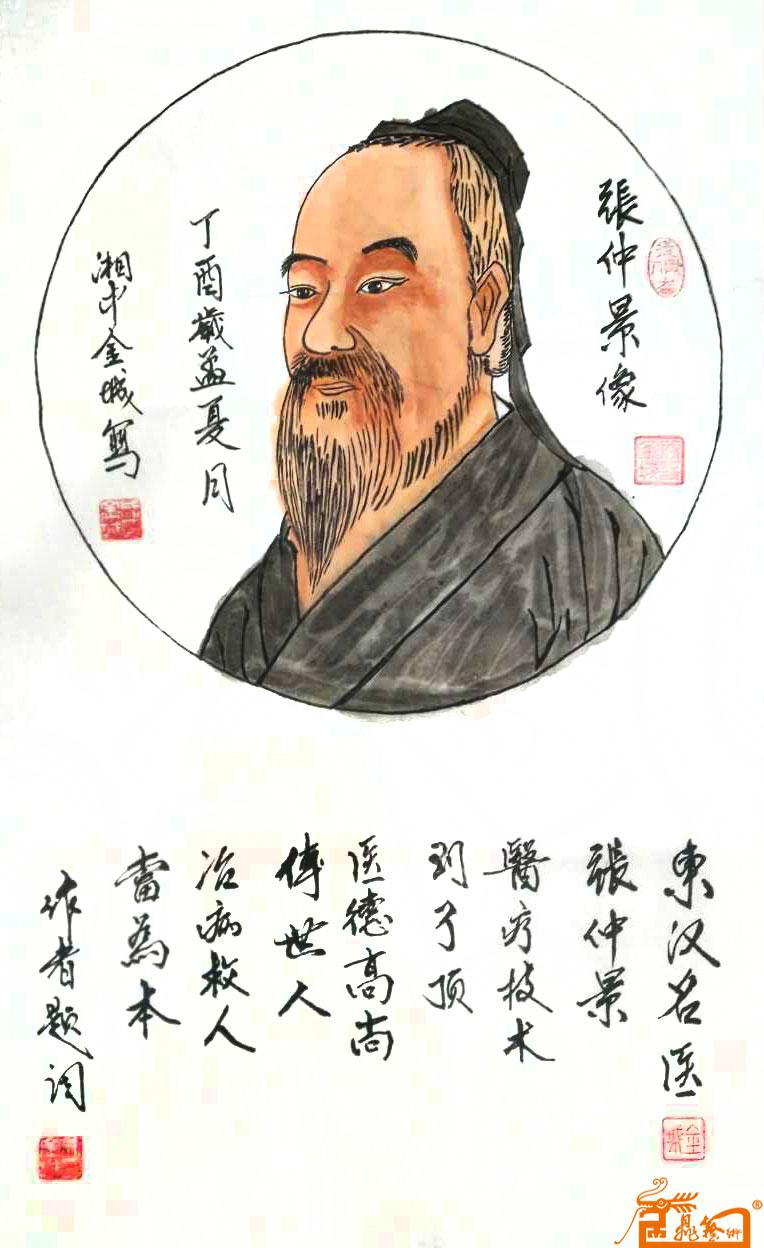 張仲景像
丁酉歲孟夏月
湘中金城寫
東汉名医
張仲景
醫疗技术
到了顶
医德高尚
傳世人
治病救人
當為本
作者题词
金城